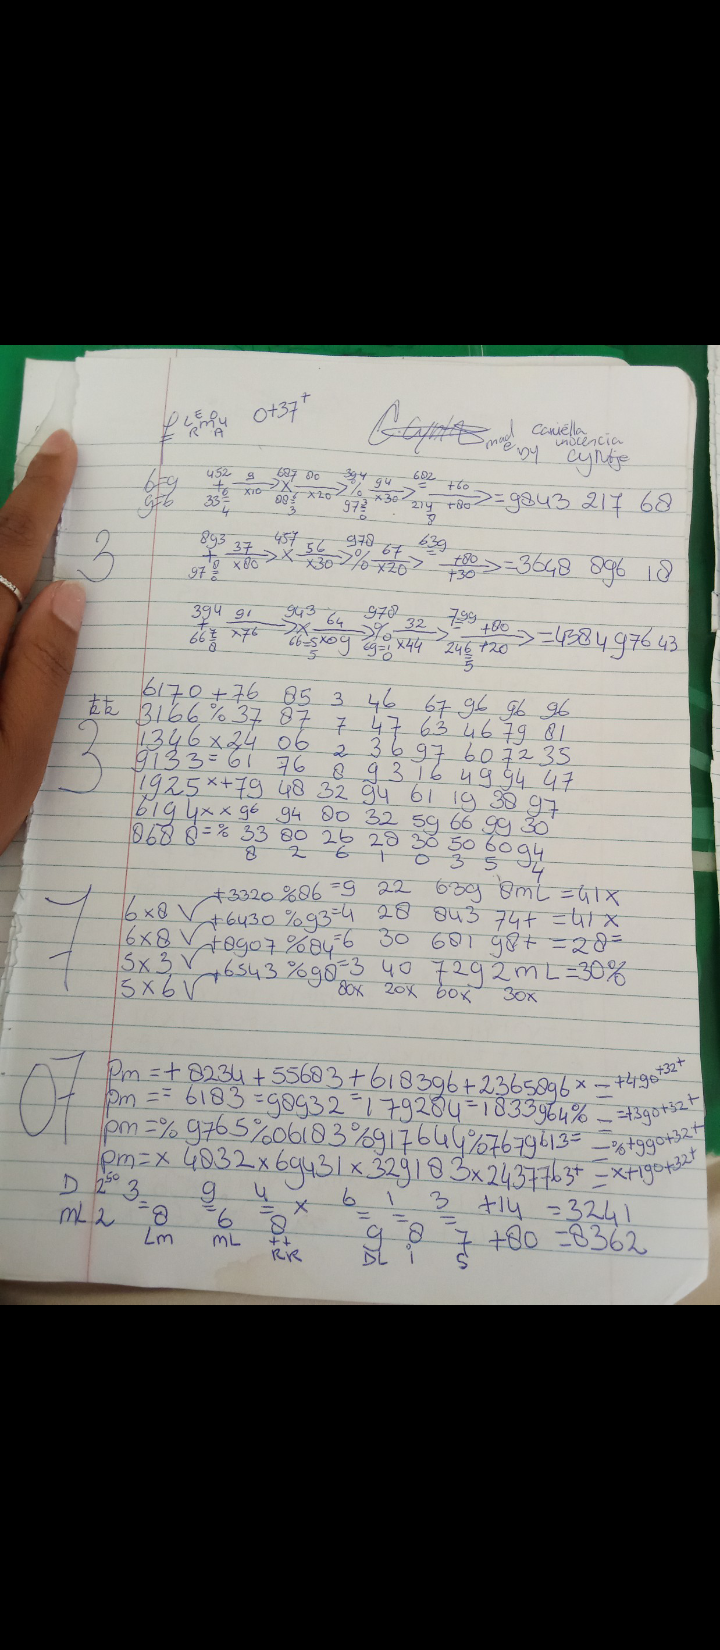 L E O 4 0+37+
R M A
made by Caniella inocencia Cyntje
6=9 452 9 687 80 394 94 682 +60 =9843 217 68
9=6 + x10 X x20 % x30 = +80
893 37 457 56 978 67 639 +80 =3648 896 18
3 + x80 X x30 % x20 = +30
394 91 943 64 978 32 799 +80 =4384 976 43
+ x76 X x09 % x44 = +20
6170 + 76 85 3 46 67 96 96 96
3166 % 37 87 7 47 63 46 79 81
3 1346 x 24 06 2 36 97 60 72 35
9133 = 61 76 8 93 16 49 94 47
1925 x + 79 48 32 94 61 19 38 97
6194 x x 96 94 80 32 59 66 99 30
8688 = % 33 80 26 28 30 50 60 94
8 2 6 1 0 3 5 4
7 6x8 √ +3320 %86 =9 22 639 8mL =41x
6x8 √ +6430 %93=4 28 843 74+ =41x
5x3 √ +8907 %84=6 30 681 98+ =28=
5x6 √ +6543 %98=3 40 729 2mL =30%
80x 20x 60x 30x
07 Pm = + 8234 + 55683 + 618396 + 2365896 x = +490+32+
Pm = = 6183 = 98932 = 179284 = 1833964% = =+390+32+
Pm = % 9765 % 06183 % 917644 % 7679613 = = %+990+32+
Pm = x 4832 x 69431 x 329183 x 2437763+ = x+190+32+
D 2 50 3 9 4 x 6 1 3 +14 =3241
mL 2 =8 =6 =8 =9 =8 =7 +80 =8362
Lm mL ++ DL i 5
RR